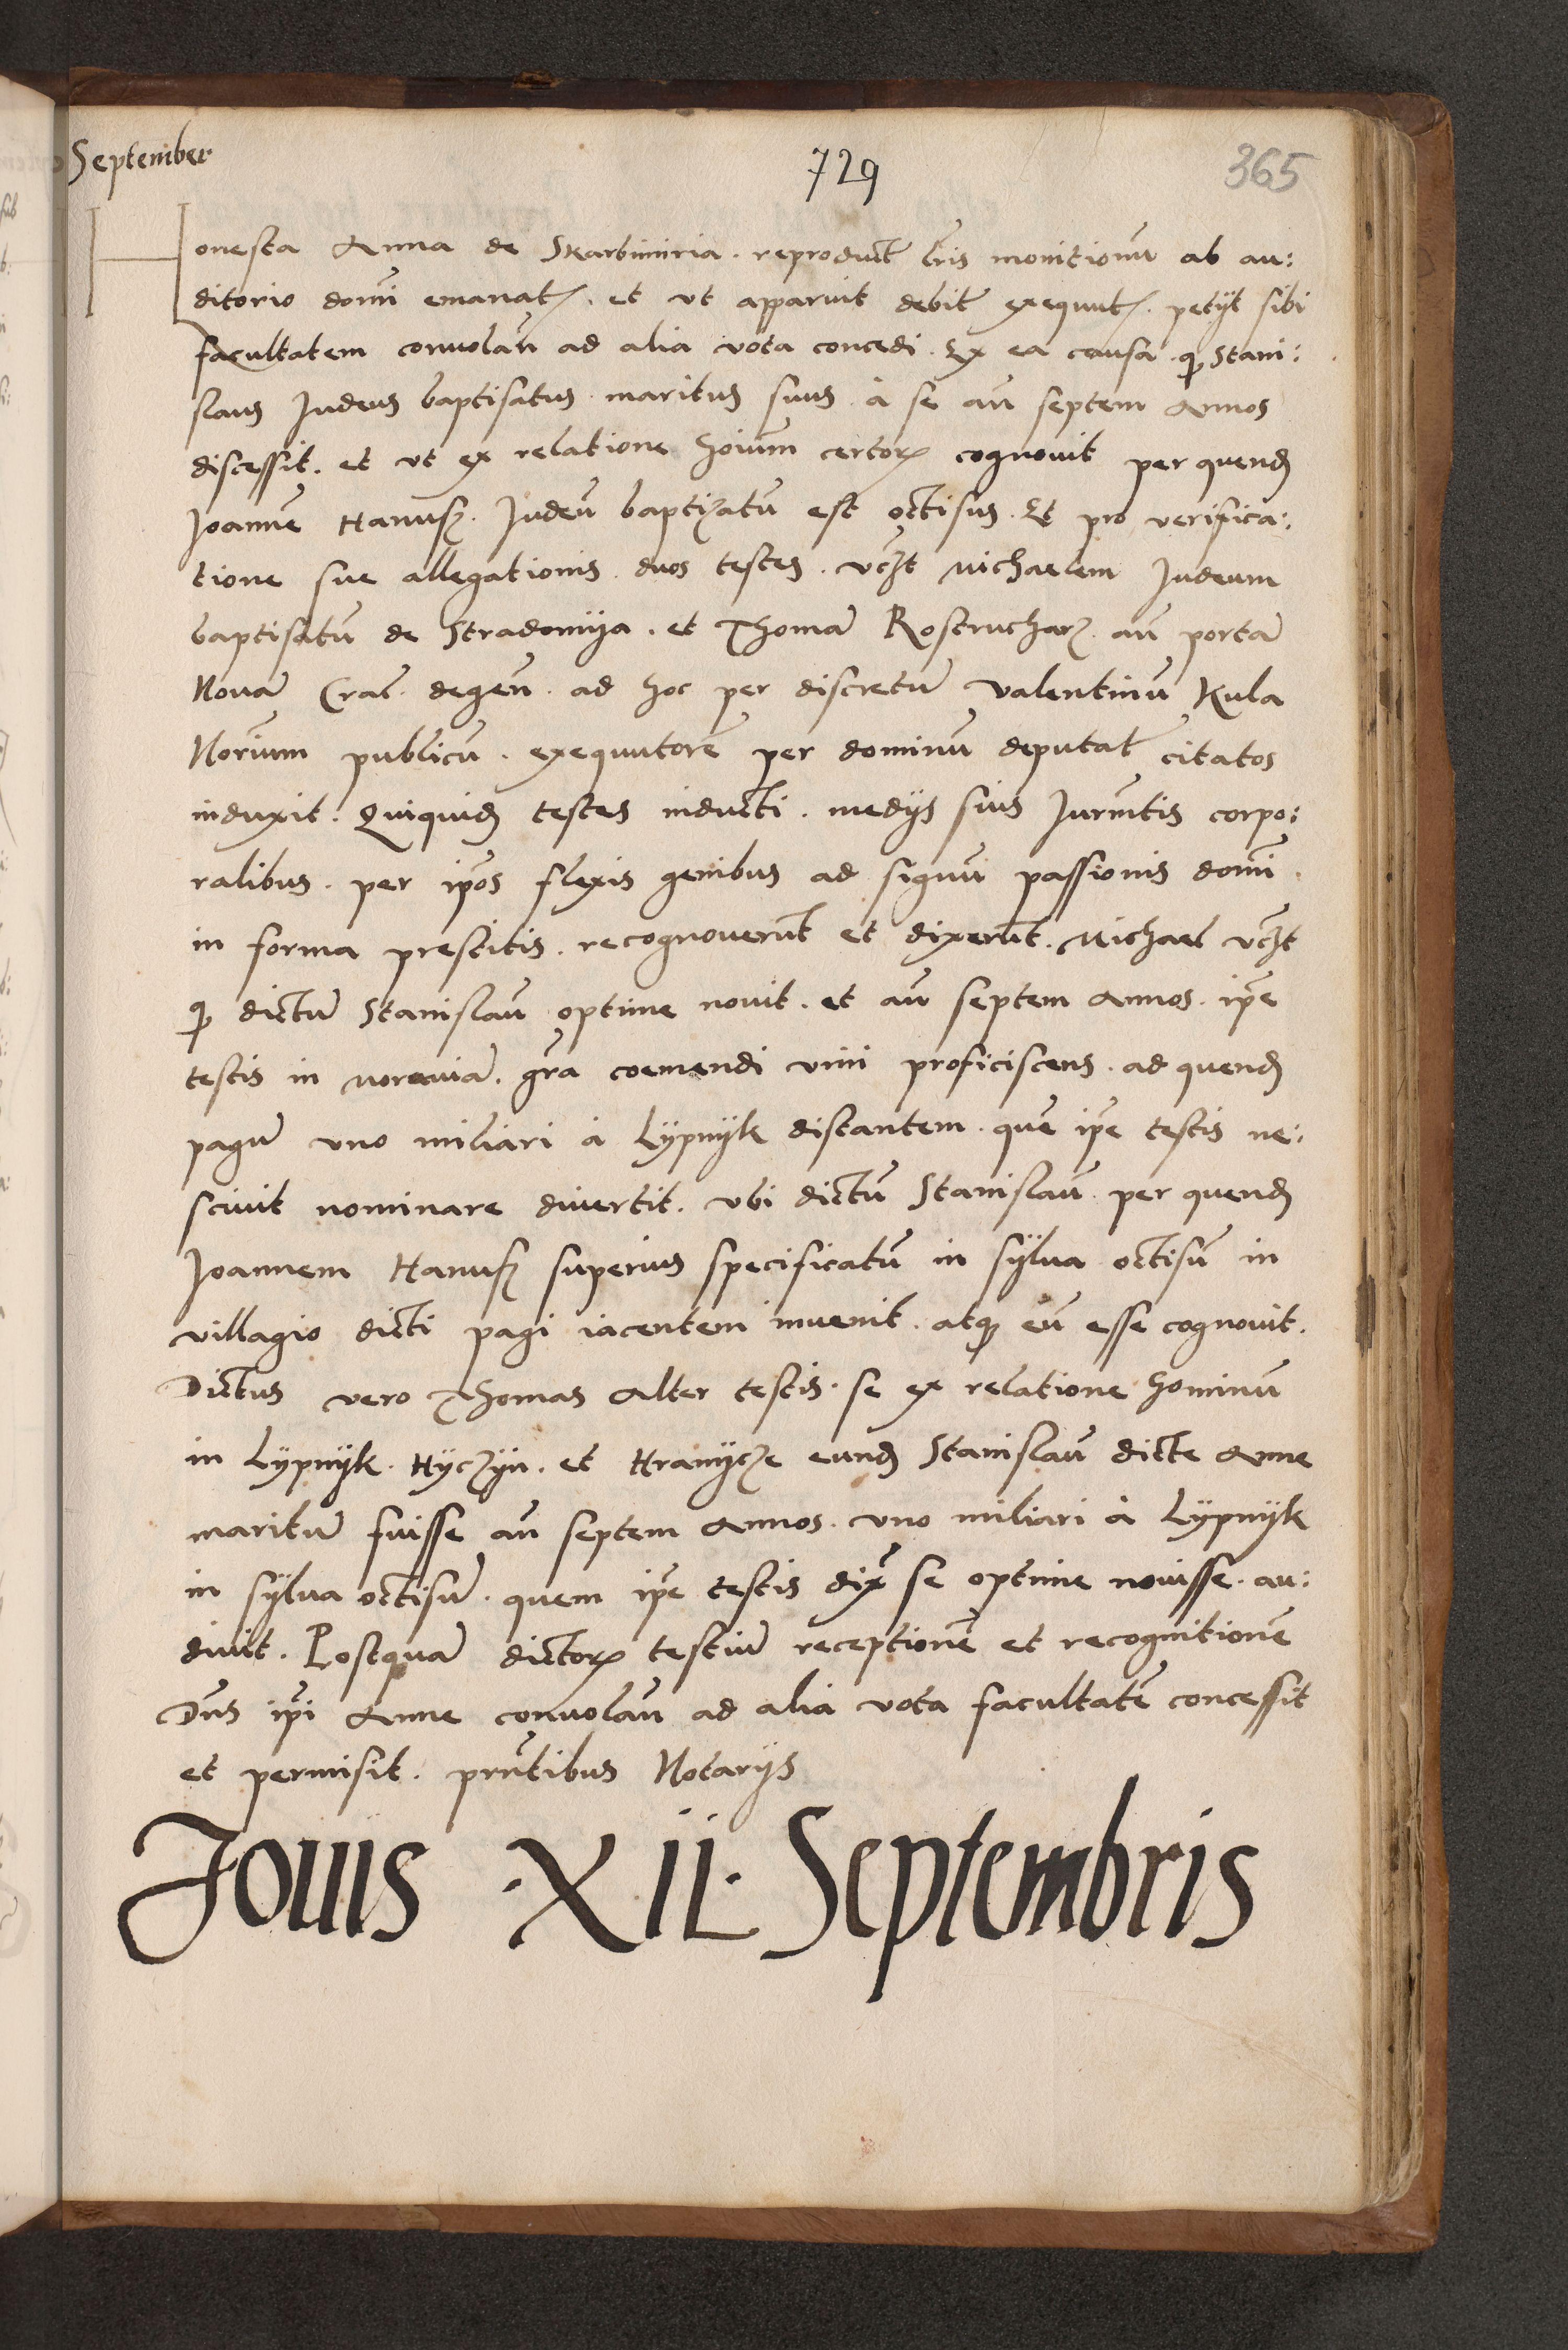 September
729
365
Honesta Anna de Skarbimiria. reproduct lris monitionu ab au:
ditorio domi emanat. et vt apparuit debite exequut. petÿt sibi
facultatem conuolan ad alia vota concedi. Ex ea causa. q Stani:
slaus Judeus baptisatus. maritus suus. à se an septem Annos
discessit. et vt ex relatione hoium certor cognouit per quend
Joanne Hanusz. Judeu baptizatu est occisus. Et pro verifica:
tione sue allegationis. duos testes. vczt Michaelem Judeum
baptisatu de Stradomÿa. et Thoma Rostrucharz. an porta
Noua Crac. degen. ad hoc per discretu Valentinu Kula
Norium publicu. exequutore per dominu deputat citatos
induxit. Quiquid testes inducti. medÿs suis Jurmtis corpo:
ralibus. per ipos flexis genibus ad signu passionis domi.
in forma prestitis. recognouerut et dixerut. Michael vczt
q dictu Stanislau optime nouit. et an septem Annos. ipe
testis in Morauia. gra coemendi vini proficiscens. ad quend
pagu vno miliari à Lÿpnÿk distantem. que ipe testis ne:
sciuit nominare diuertit. vbi dictu Stanislau. per quend
Joannem Hanusz superius specificatu in sÿlua occisu in
villagio dicti pagi iacentem inuenit. atq eu esse cognouit.
Dictus vero Thomas Alter testis. se ex relatione hominu
in Lÿpnÿk. Hÿczÿn. et Hranÿcze eund Stanislau dicte Anne
maritu fuisse an septem Annos. vno miliari à Lÿpnÿk
in sÿlua occisu. quem ipe testis dix se optime nouisse. au:
diuit. Postqua dictor testiu receptione et recognitione
Dns ipi Anne conuolan ad alia vota facultate concessit
et permisit. pruntibus Notarÿs
Jouis .XII. Septembris